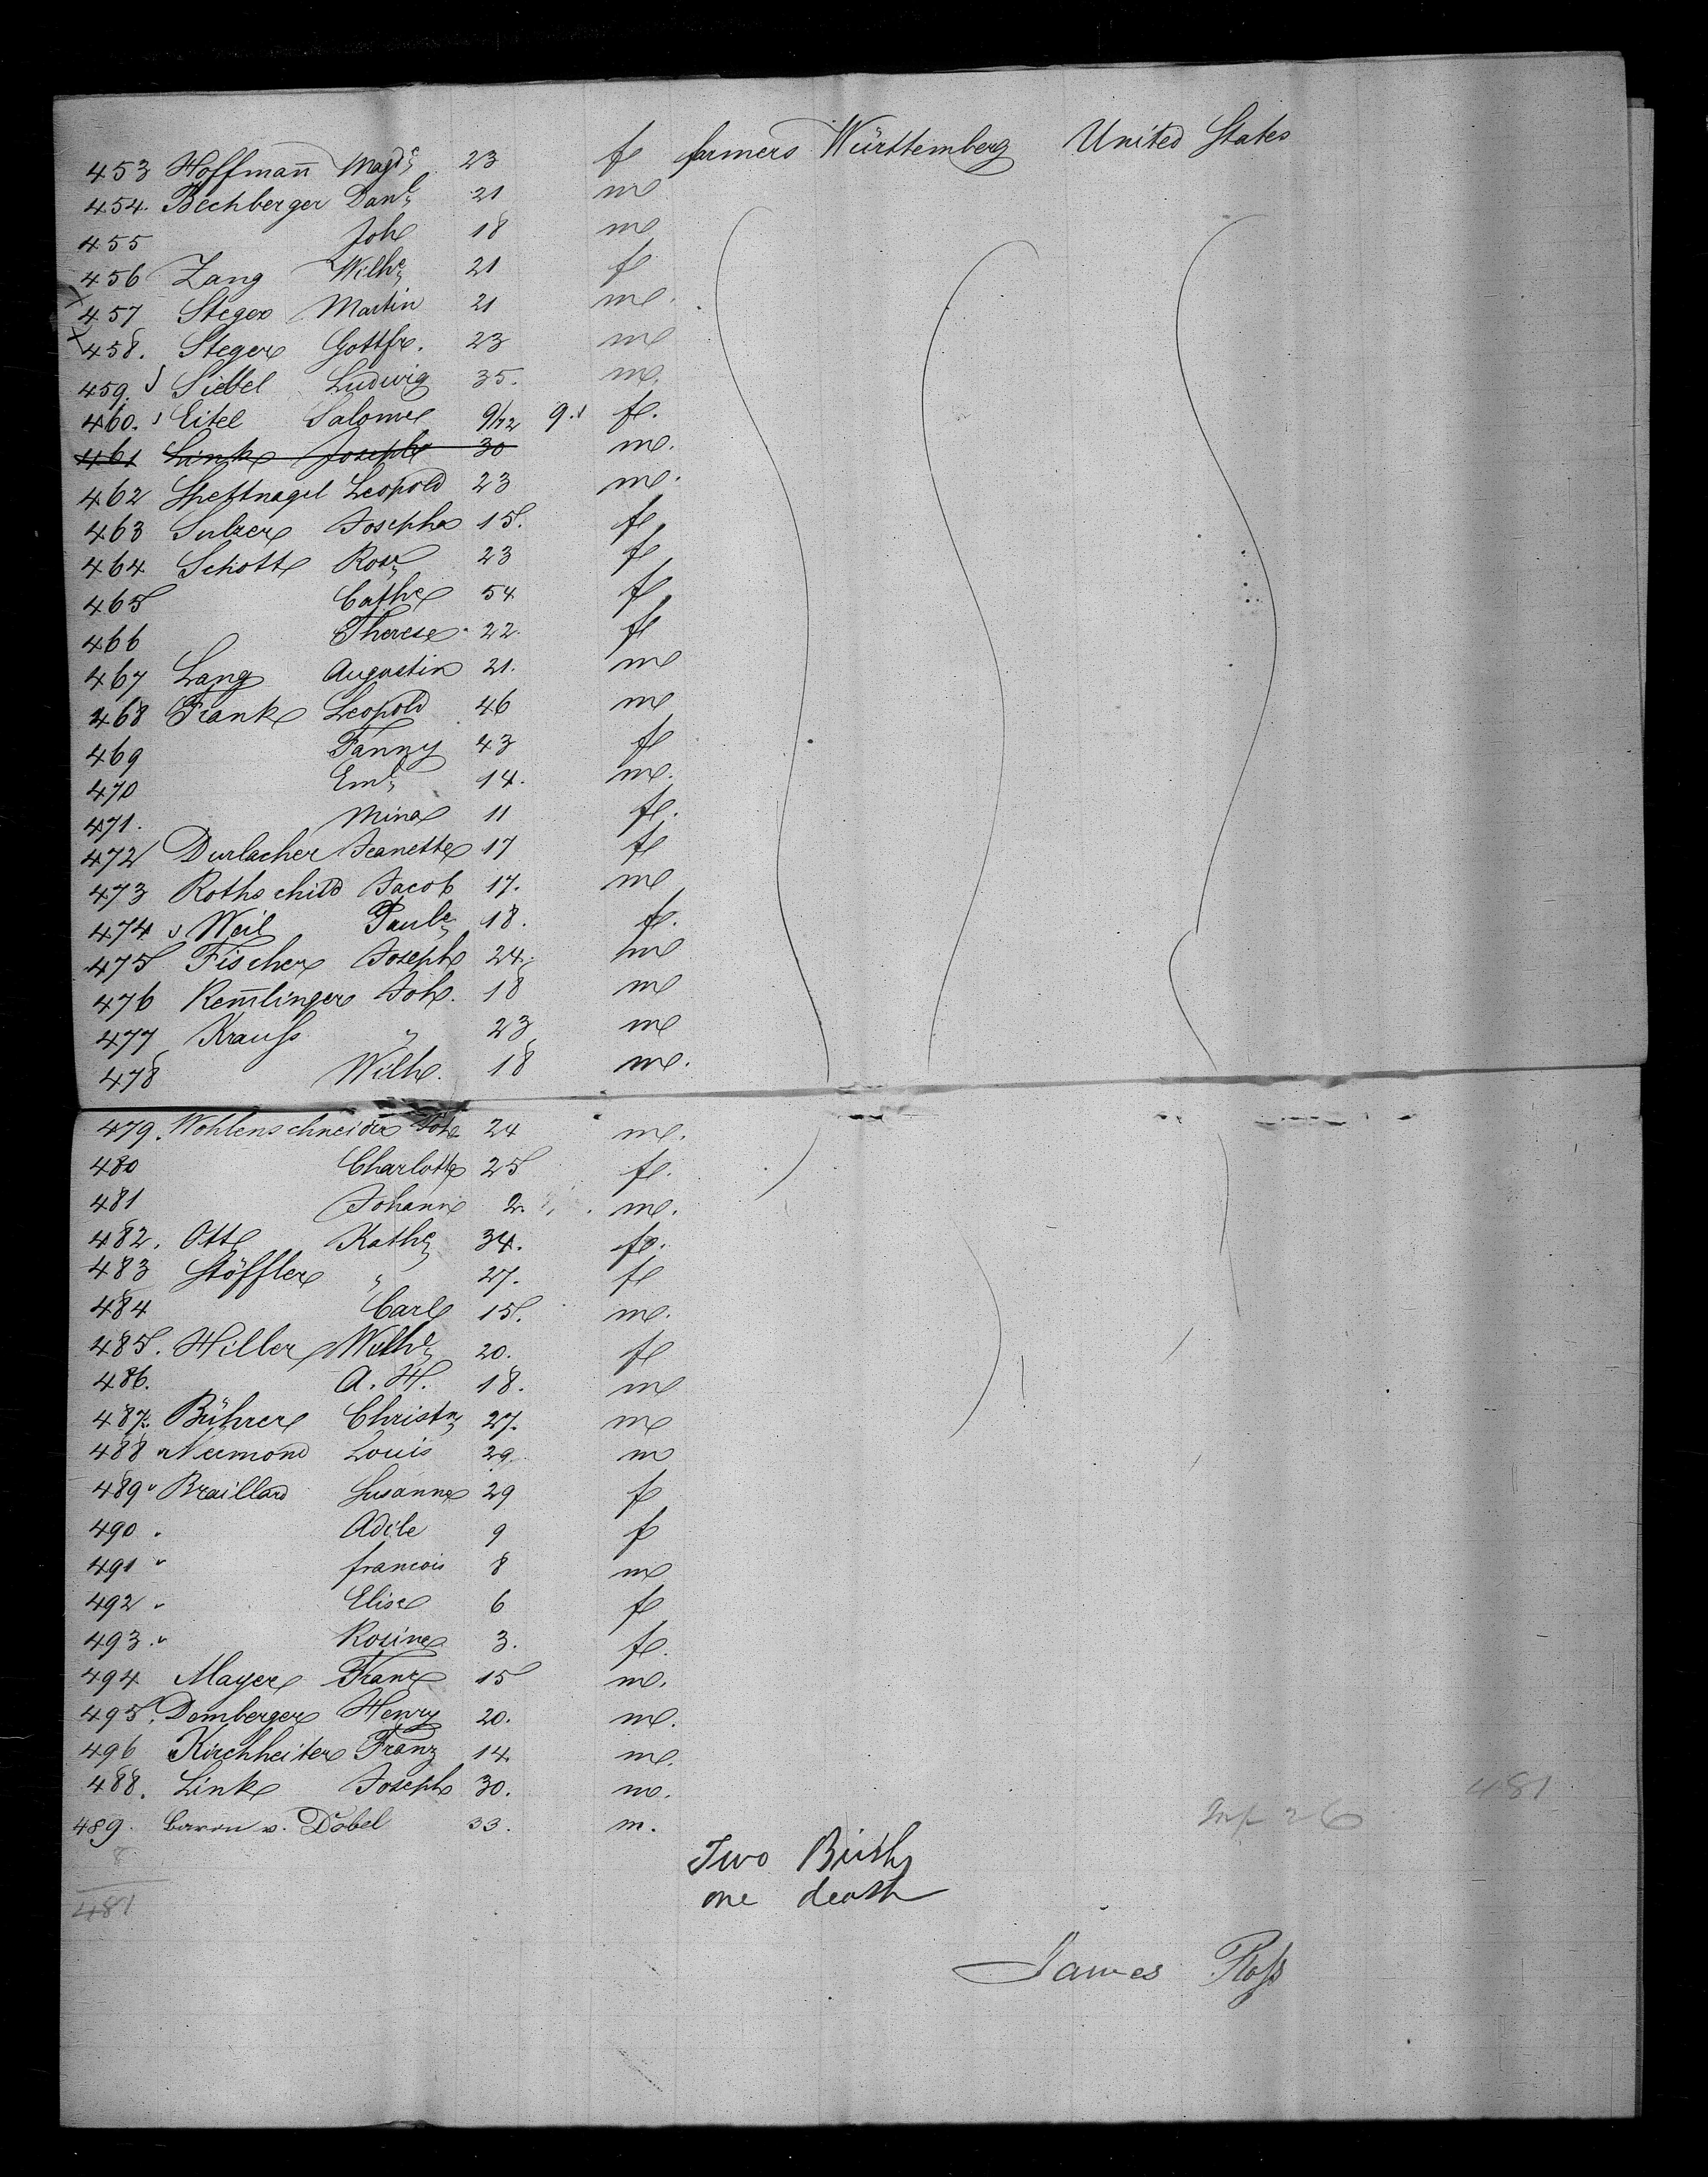 453 Hoffmañ Magde 23 f farmers Württemberg United States
454. Bechberger Danl 21 m
455 Joh 18 m
456 Zang Wilhe 21 f
457 Steger Martin 21 m.
458. Steger Gottfr. 23 m
459. Siebel Ludwig 35. m.
460. Eitel Salome 9/12 9. f.
461 Link Joseph 30 m.
462 Leopold 23 m.
463 Sulzer Josepha 15. f
464 Schott Rosa 23 f
465 Cathe 54 f
466 Therese 22. f
467 Lang Augustin 21. m
468 Frank Leopold 46 m
469 Fanny 43 f
470 Eml 14. m.
471. Mina 11 f.
472 Durlacher Jeanette 17 f
473 Rothschild Jacob 17. m
474 Weil Paule 18. f.
475 Fischer Joseph 24. m
476 Rem̄linger Joh. 18 m
477 Krauss " 23 m
478 Wilh. 18 m.
479. Wohlenschneider Joh 24 m.
480 Charlotte 25 f.
481 Johann 2. m.
482. Ott Kathe 34. f.
483 Stöffler " 27. f
484 Carl 15. m.
485. Hiller Wilhe 20. f
486. A. H. 18. m
487. Bührer Christn 27. m
488 Neemond Louis 29. m
489 " Braillard Susanne 29 f
490 " Adile 9 f
491 " francois 8 m
492 " Elise 6 f
493. " Rosine 3. f.
494 Mayer Franz 15 m.
495. Demberger Henry 20. m.
496 Kirchheiter Franz 14 m.
488. Link Joseph 30. m. 481
489. Baron v. Döbel 33. m. Inf 26
8 Two Births
481 one death
James Ross